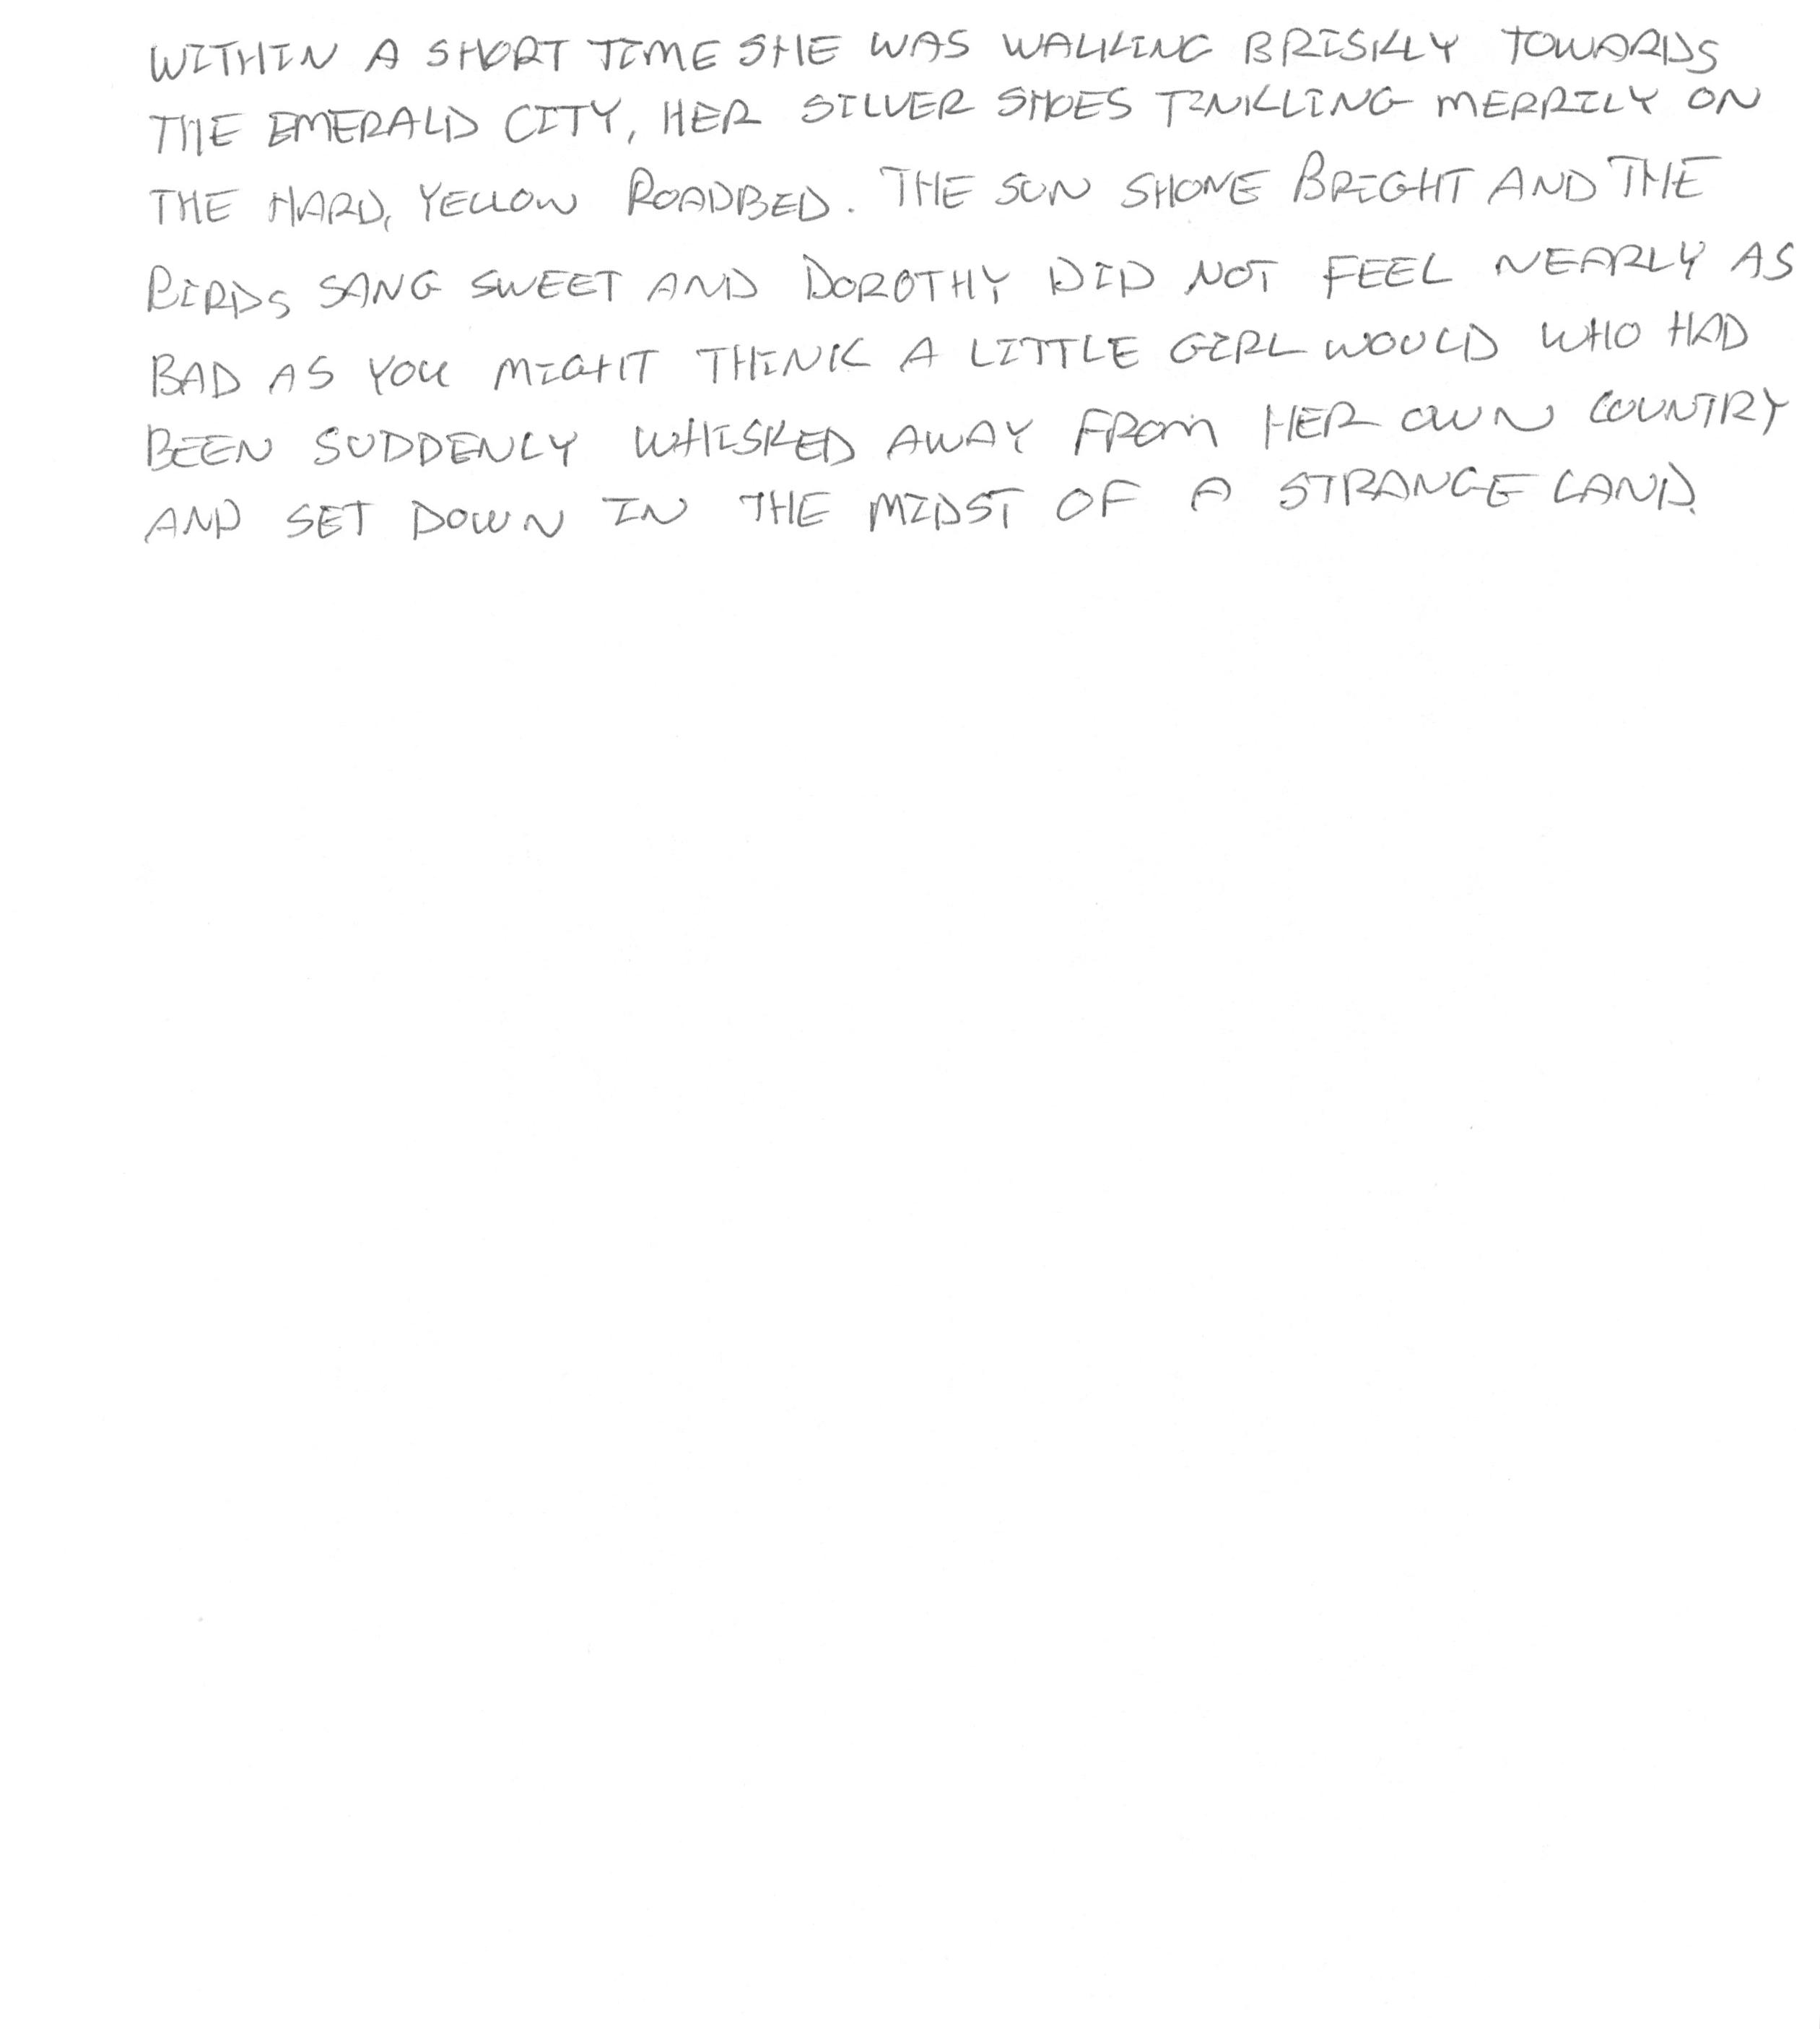 WITHIN A SHORT TIME SHE WAS WALKING BRISKLY TOWARDS
THE EMERALD CITY, HER SILVER SHOES TINKLING MERRILY ON
THE HARD, YELLOW ROADBED. THE SUN SHONE BRIGHT AND THE
BIRDS SANG SWEET AND DOROTHY DID NOT FEEL NEARLY AS
BAD AS YOU MIGHT THINK A LITTLE GIRL WOULD WHO HAD
BEEN SUDDENLY WHISKED AWAY FROM HER OWN COUNTRY
AND SET DOWN IN THE MIDST OF A STRANGE LAND.